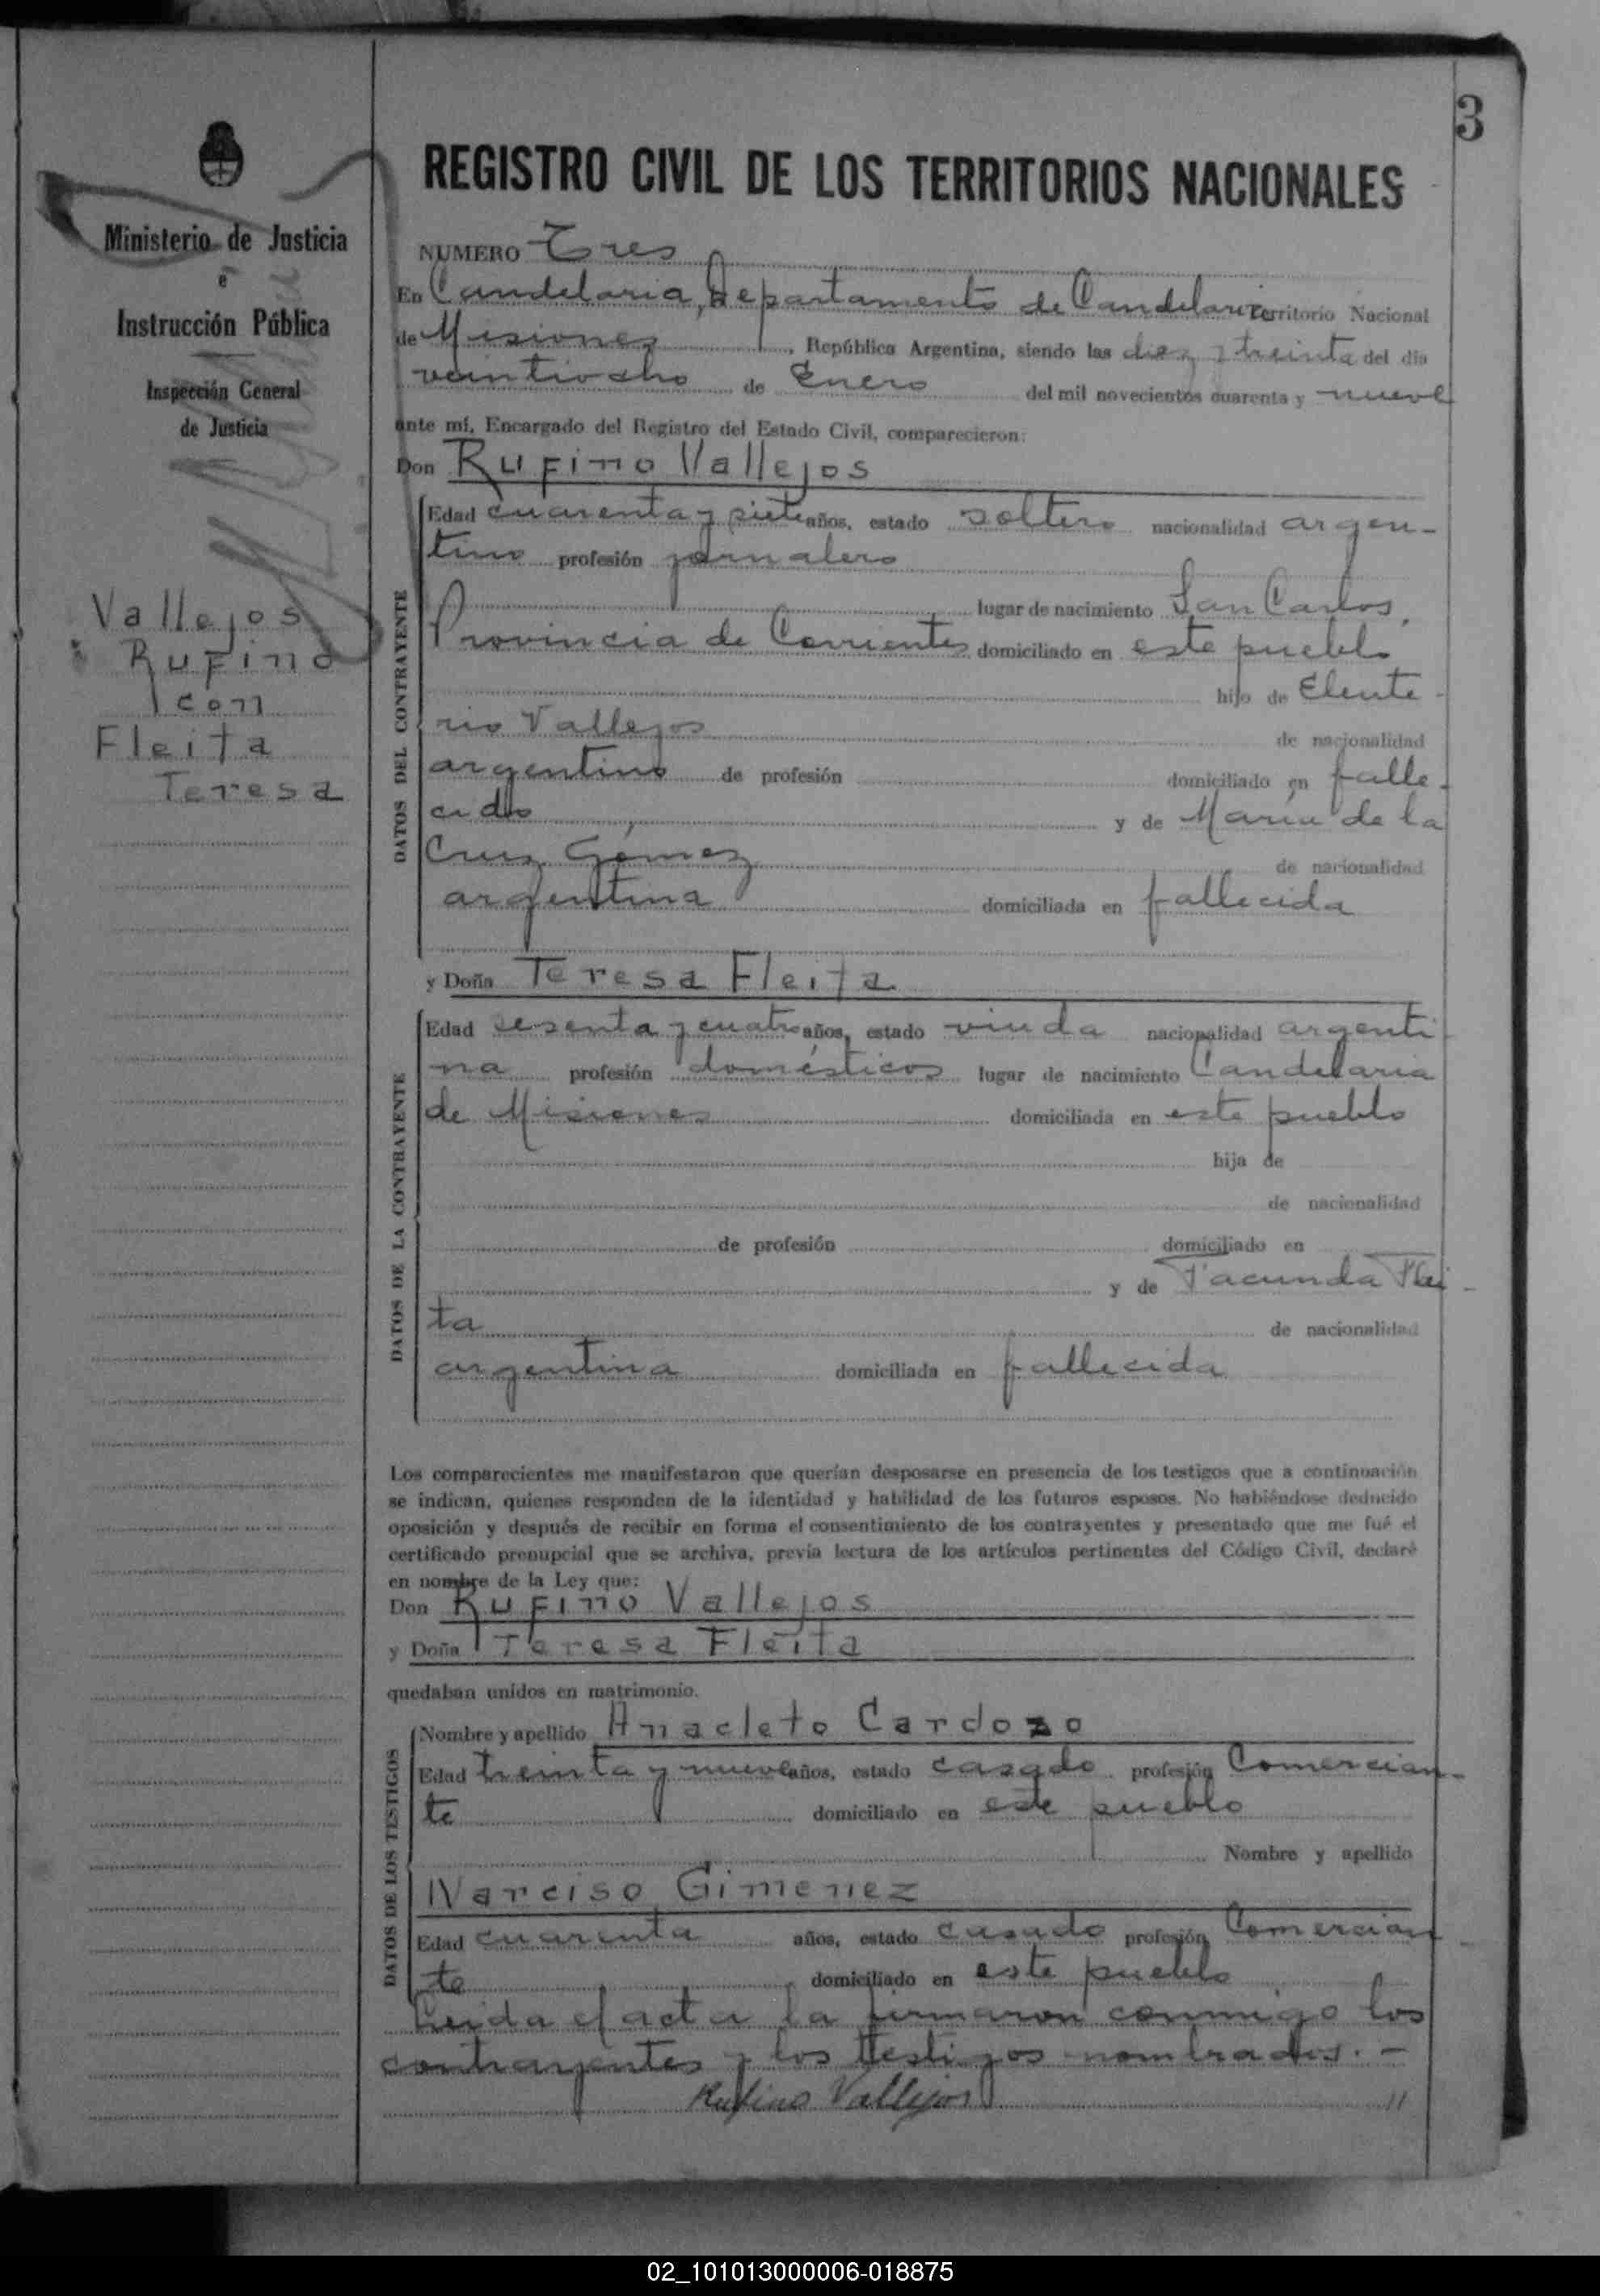 3
REGISTRO CIVIL DE LOS TERRITORIOS NACIONALES
Ministerio de Justicia
e
Instrucción Pública
Inspección General
de Justicia
Vallejos
Rufino
con
Fleita
Teresa
NUMERO Tres
En Candelaria, Departamento de Candelaria Territorio Nacional
de Misiones, República Argentina, siendo las diez y treinta del día
veintiocho de Enero del mil novecientos cuarenta y nueve
ante mí, Encargado del Registro del Estado Civil, comparecieron:
Don Rufino Vallejos
DATOS DEL CONTRAYENTE
Edad cuarenta y siete años, estado soltero nacionalidad argen-
tino profesión jornalero
lugar de nacimiento San Carlos,
Provincia de Corrientes domiciliado en este pueblo
hijo de Eleute-
rio Vallejos de nacionalidad
argentino de profesión domiciliado en falle-
cido y de María de la
Cruz Gómez de nacionalidad
argentina domiciliada en fallecida
y Doña Teresa Fleita
DATOS DE LA CONTRAYENTE
Edad sesenta y cuatro años, estado viuda nacionalidad argenti-
na profesión domésticos lugar de nacimiento Candelaria
de Misiones domiciliada en este pueblo
hija de
de nacionalidad
de profesión domiciliado en
y de Facunda Flei-
ta de nacionalidad
argentina domiciliada en fallecida
Los comparecientes me manifestaron que querían desposarse en presencia de los testigos que a continuación
se indican, quienes responden de la identidad y habilidad de los futuros esposos. No habiéndose deducido
oposición y después de recibir en forma el consentimiento de los contrayentes y presentado que me fué el
certificado prenupcial que se archiva, previa lectura de los artículos pertinentes del Código Civil, declaré
en nombre de la Ley que:
Don Rufino Vallejos
y Doña Teresa Fleita
quedaban unidos en matrimonio.
DATOS DE LOS TESTIGOS
Nombre y apellido Anacleto Cardozo
Edad treinta y nueve años, estado casado profesión Comercian-
te domiciliado en este pueblo
Nombre y apellido
Narciso Gimenez
Edad cuarenta años, estado casado profesión Comercian-
te domiciliado en este pueblo
Leida el acta la firmaron conmigo los
contrayentes y los testigos nombrados. -
Rufino Vallejos //
02_101013000006-018875